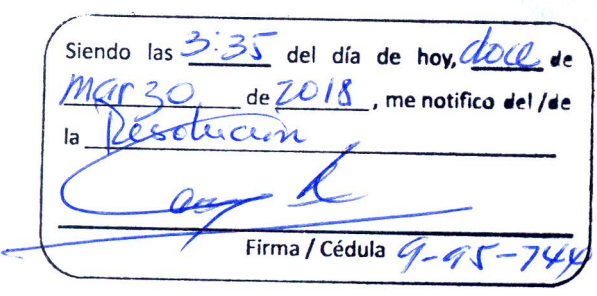 Siendo las 3:35 del día de hoy, doce de
marzo de 2018, me notifico del /de
la Resolución
Firma / Cédula 9-95-744